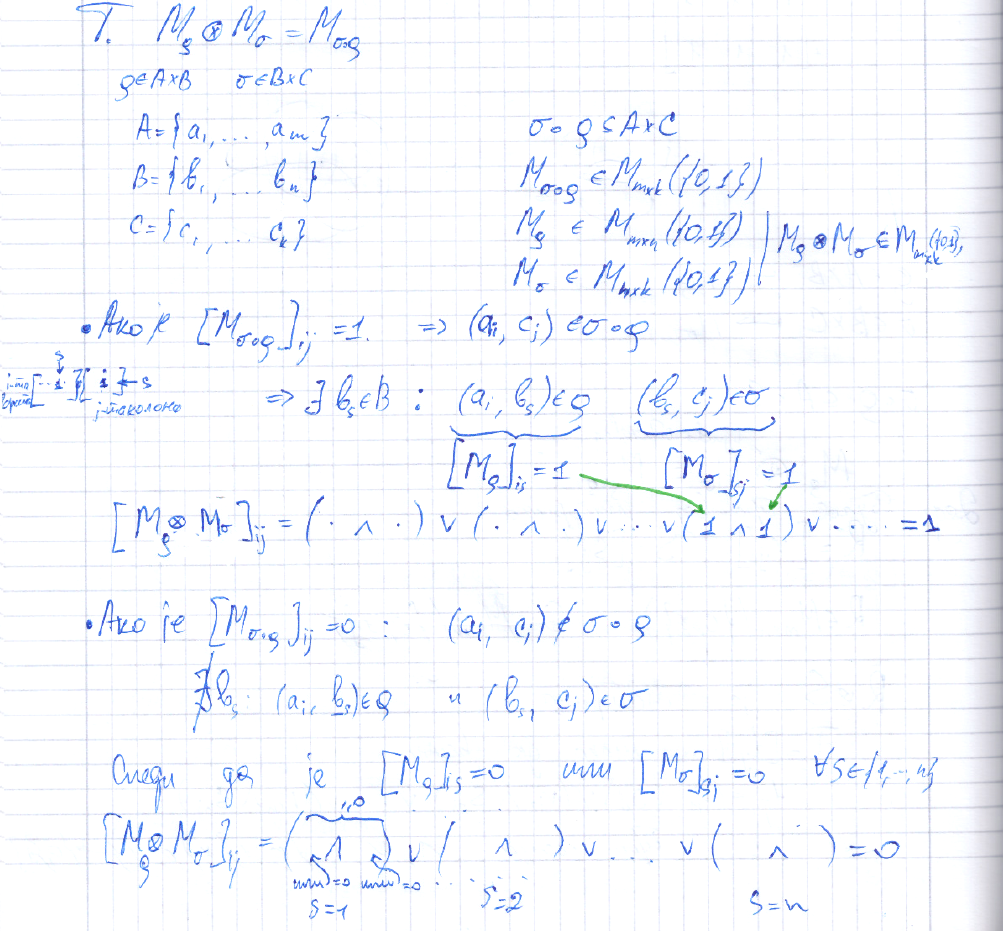 T. M_ρ ⊗ M_σ = M_σ∘ρ
ρ∈A×B σ∈B×C
A={a₁, ..., a_m}
B={b₁, ... b_n}
C={c₁, ... c_k}
σ∘ρ ⊆ A×C
M_σ∘ρ ∈ M_m×k({0,1})
M_ρ ∈ M_m×n({0,1})
M_σ ∈ M_n×k({0,1})
M_ρ ⊗ M_σ ∈ M_m×k({0,1})
• Ако је [M_σ∘ρ]_ij = 1. ⇒ (a_i, c_j) ∈ σ∘ρ
s
i-та [ ·· 1 · ][ 1 ] ← s
врста j-та колона
⇒ ∃ b_s∈B : (a_i, b_s)∈ρ (b_s, c_j)∈σ
[M_ρ]_is = 1 [M_σ]_sj = 1
[M_ρ ⊗ M_σ]_ij = (· ∧ ·) ∨ (· ∧ ·) ∨ ... ∨ (1 ∧ 1) ∨ .... = 1
• Ако је [M_σ∘ρ]_ij = 0 : (a_i, c_j) ∉ σ∘ρ
∄ b_s: (a_i, b_s)∈ρ и (b_s, c_j)∈σ
Следи да је [M_ρ]_is = 0 или [M_σ]_sj = 0 ∀s∈{1,..,n}
0
[M_ρ ⊗ M_σ]_ij = ( ∧ ) ∨ ( ∧ ) ∨ ... ∨ ( ∧ ) = 0
или=0 или=0 ....
s=1 s=2 s=n